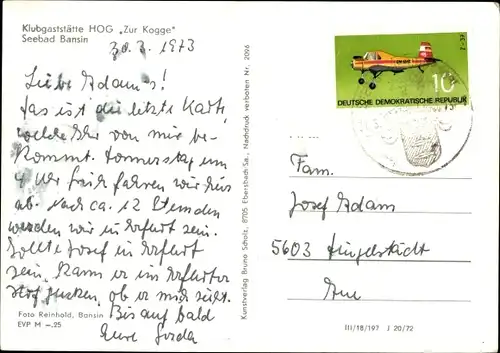 Klubgaststätte HOG „Zur Kogge"
Seebad Bansin
30.3.1973
Liebe Adam's!
Das ist die letzte Karte,
welche Ihr von mir be-
kommt. Donnerstag um
4 Uhr früh fahren wir hier
ab. Nach ca. 12 Stunden
werden wir in Erfurt sein.
Sollte Josef in Erfurt
sein. Kann er im Erfurter
gucken, ob er mich sieht.
Bis auf bald
Eure
Foto Reinhold, Bansin
EVP M –.25
Kunstverlag Bruno Scholz, 8705 Ebersbach/Sa., Nachdruck verboten Nr. 2096
10
DEUTSCHE DEMOKRATISCHE REPUBLIK
Fam.
Josef Adam
5603 Dingelstädt
III/18/197 J 20/72